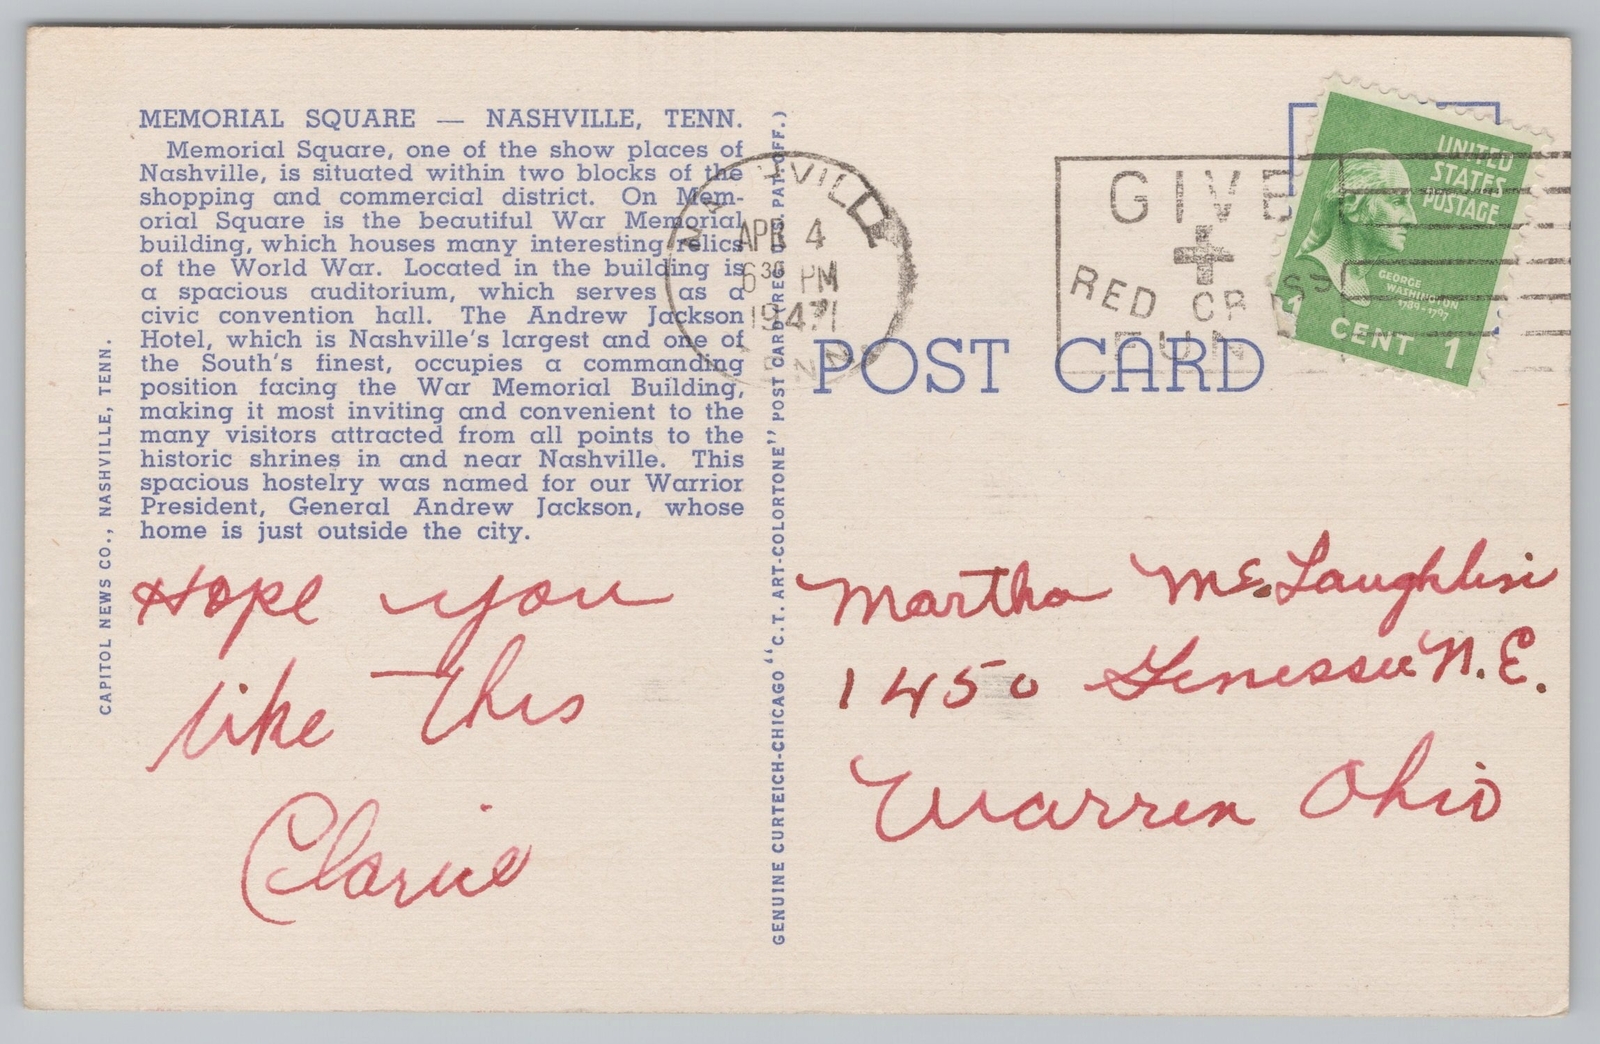 MEMORIAL SQUARE — NASHVILLE, TENN.
Memorial Square, one of the show places of
Nashville, is situated within two blocks of the
shopping and commercial district. On Mem-
orial Square is the beautiful War Memorial
building, which houses many interesting relics
of the World War. Located in the building is
a spacious auditorium, which serves as a
civic convention hall. The Andrew Jackson
Hotel, which is Nashville's largest and one of
the South's finest, occupies a commanding
position facing the War Memorial Building,
making it most inviting and convenient to the
many visitors attracted from all points to the
historic shrines in and near Nashville. This
spacious hostelry was named for our Warrior
President, General Andrew Jackson, whose
home is just outside the city.
CAPITOL NEWS CO., NASHVILLE, TENN.
Hope you
like this
Clarice
GENUINE CURTEICH-CHICAGO "C.T. ART-COLORTONE" POST CARD (REG. U.S. PAT. OFF.)
NASHVILLE
APR 4
6 30 PM
1947
TENN.
GIVE
RED CROSS
FUND
UNITED
STATES
POSTAGE
GEORGE
WASHINGTON
1789-1797
1 CENT 1
POST CARD
Martha McLaughlin
1450 Genessee N.E.
Warren Ohio